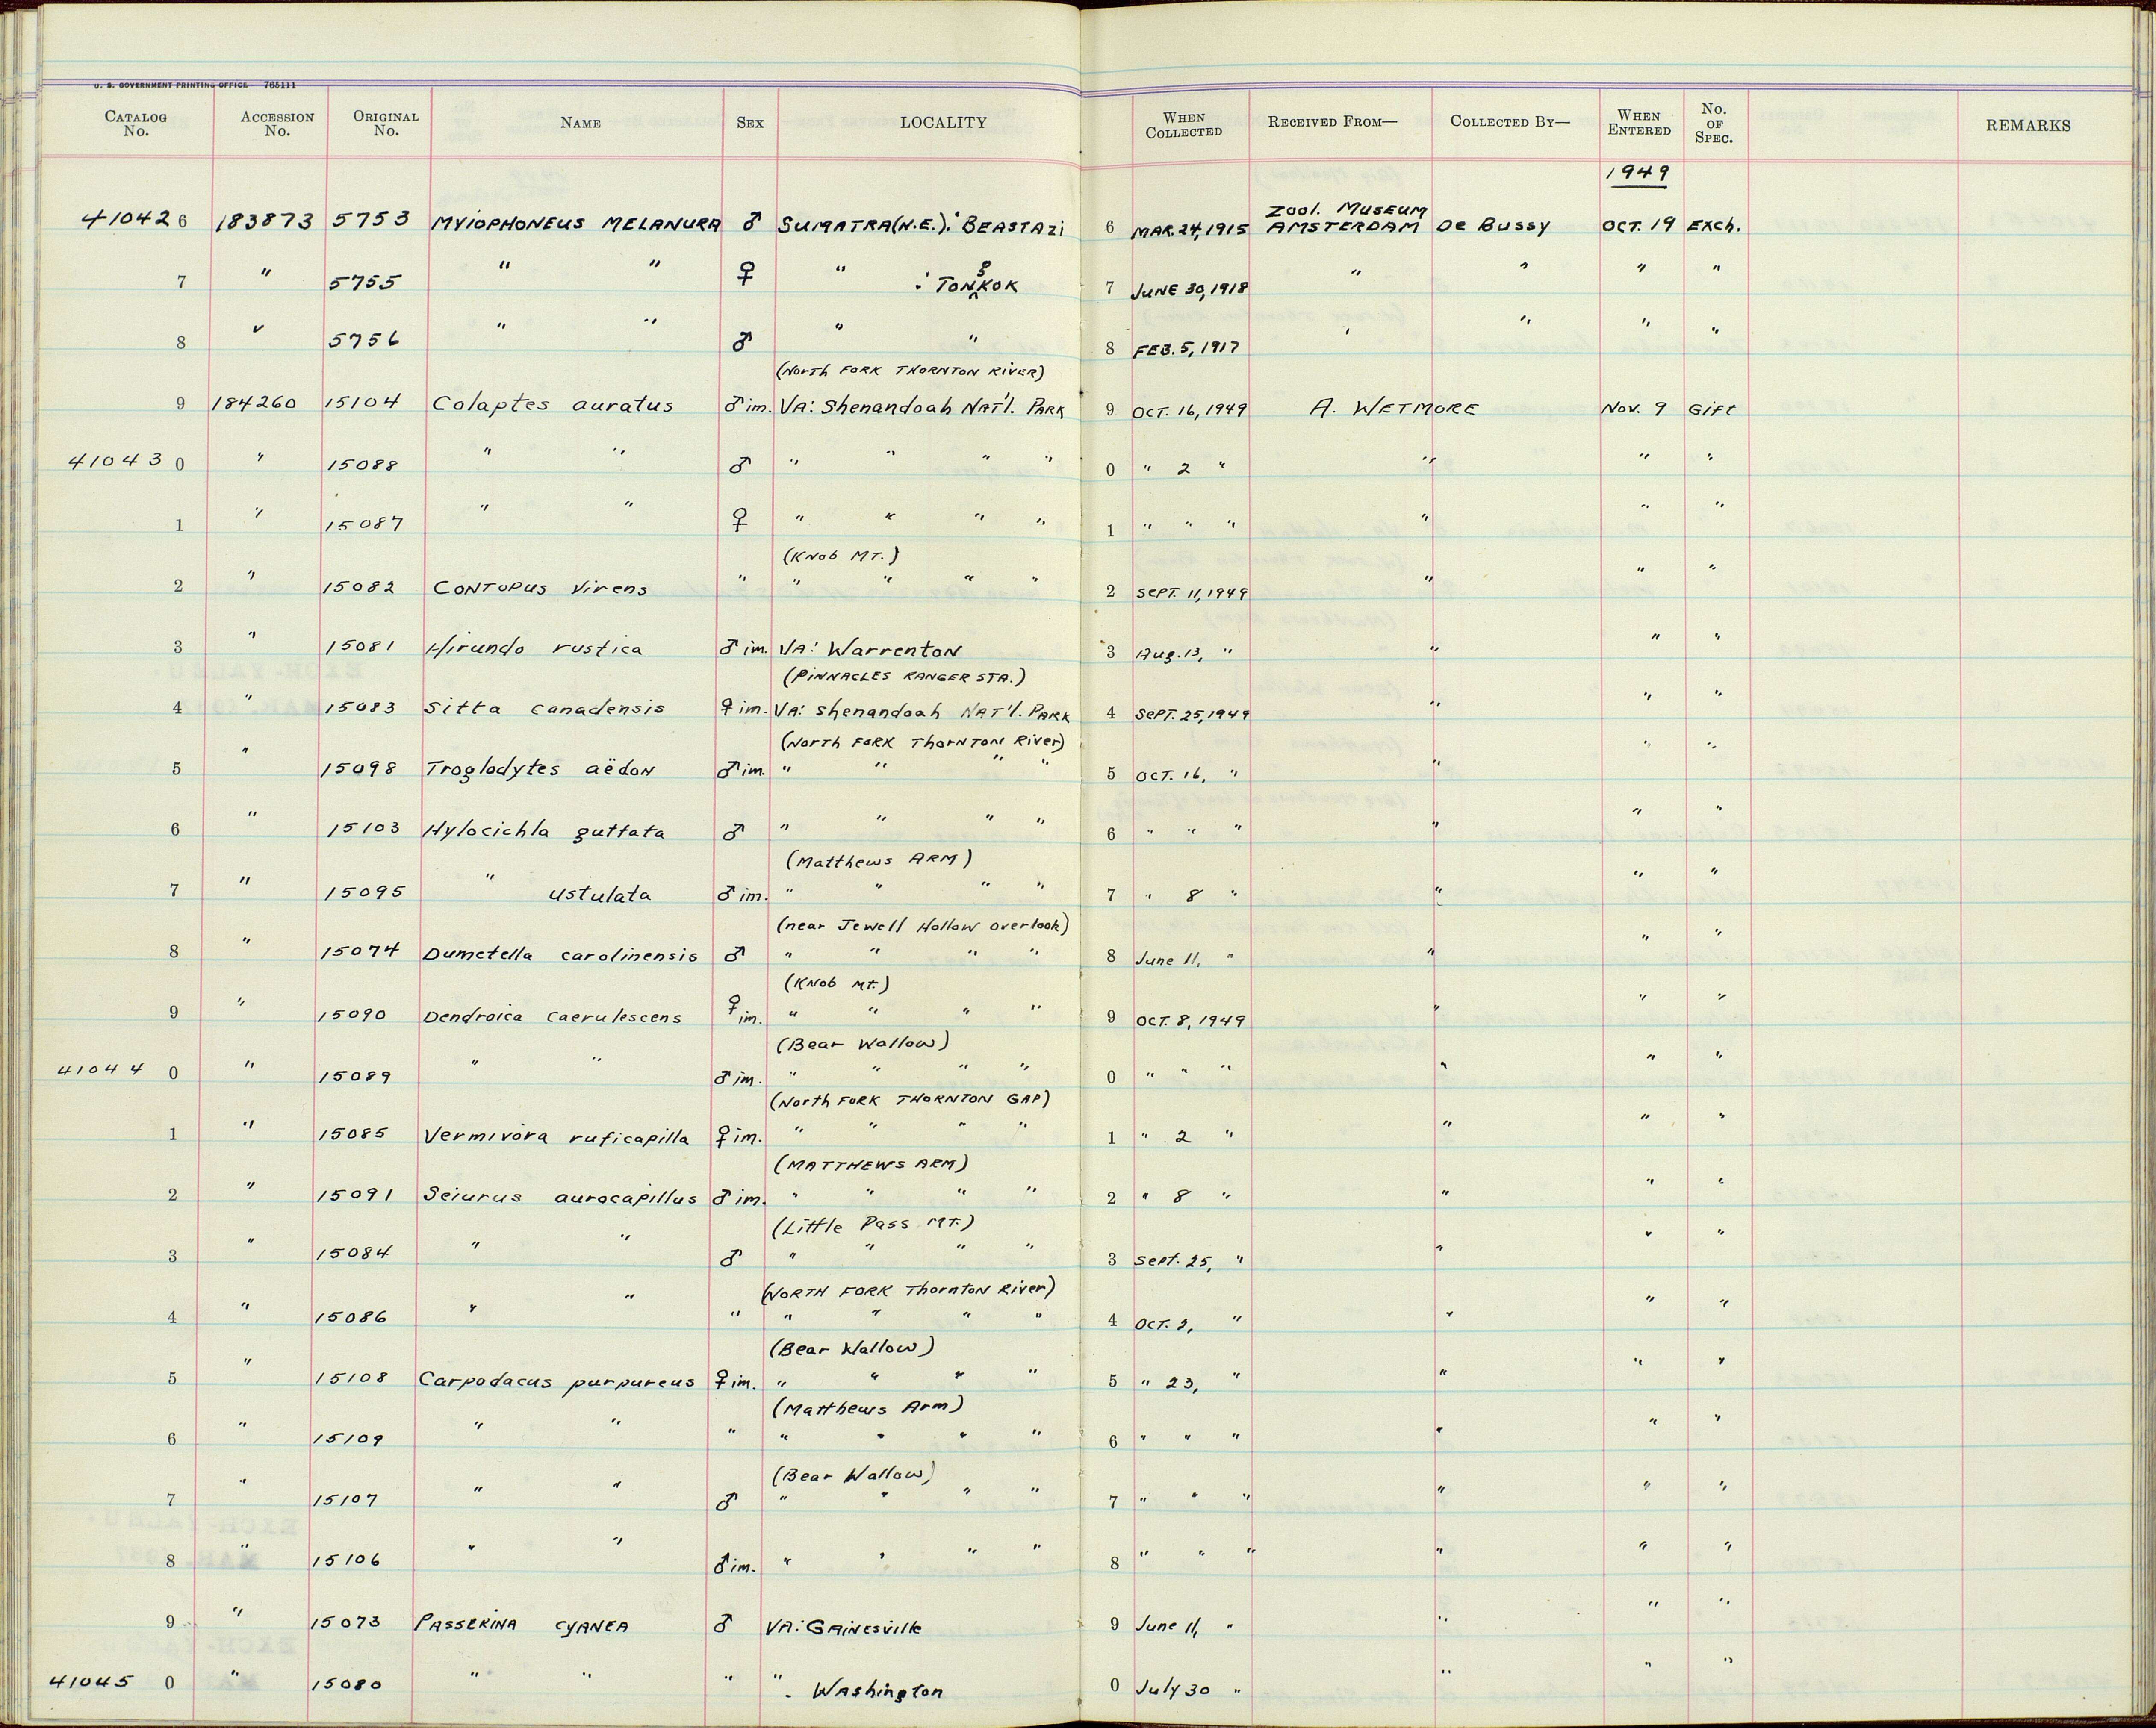 U. S. GOVERNMENT PRINTING OFFICE 765111
CATALOG No. ACCESSION No. ORIGINAL No. NAME SEX LOCALITY WHEN COLLECTED RECEIVED FROM— COLLECTED BY— WHEN ENTERED No. OF SPEC. REMARKS
1949
41042 6 183873 5753 MYIOPHONEUS MELANURA ♂ SUMATRA(N.E.): BEASTAZi 6 MAR. 24, 1915 Zool. MUSEUM AMSTERDAM De Bussy OCT. 19 EXch.
7 " 5755 " " ♀ " : TONGKOK 7 JUNE 30, 1918 " " " "
8 " 5756 " " ♂ " " 8 FEB. 5, 1917 " " " "
(North FORK THORNTON RIVER)
9 184260 15104 Colaptes auratus ♂ im. VA: Shenandoah NAT'l. PARK 9 OCT. 16, 1949 A. WETMORE Nov. 9 Gift
41043 0 " 15088 " " ♂ " " " " 0 " 2 " " " "
1 " 15087 " " ♀ " " " " 1 " " " " " "
(KNob MT.)
2 " 15082 CONTOPUS Virens " " " " " 2 SEPT. 11, 1949 " " "
3 " 15081 Hirundo rustica ♂ im. VA: Warrenton 3 Aug. 13, " " " "
(PiNNACLES RANGER STA.)
4 " 15083 Sitta canadensis ♀ im. VA: Shenandoah NAT'l. PARK 4 SEPT. 25, 1949 " " "
(North FORK ThorNTON River)
5 " 15098 Troglodytes aëdon ♂ im. " " " " 5 OCT. 16, " " " "
6 " 15103 Hylocichla guttata ♂ " " " " 6 " " " " " "
(Matthews ARM)
7 " 15095 " ustulata ♂ im. " " " " 7 " 8 " " " "
(near Jewell Hollow overlook)
8 " 15074 Dumetella carolinensis ♂ " " " " 8 June 11, " " " "
(KNob MT.)
9 " 15090 Dendroica caerulescens ♀ im. " " " " 9 OCT. 8, 1949 " " "
(Bear Wallow)
41044 0 " 15089 " " ♂ im. " " " " 0 " " " " " "
(North FORK THORNTON GAP)
1 " 15085 Vermivora ruficapilla ♀ im. " " " " 1 " 2 " " " "
(MATTHEWS ARM)
2 " 15091 Seiurus aurocapillus ♂ im. " " " " 2 " 8 " " " "
(Little Pass MT.)
3 " 15084 " " ♂ " " " " 3 Sept. 25, " " " "
(NORTH FORK ThorntoN River)
4 " 15086 " " " " " " " 4 OCT. 2, " " " "
(Bear Wallow)
5 " 15108 Carpodacus purpureus ♀ im. " " " " 5 " 23, " " " "
(Matthews Arm)
6 " 15109 " " " " " " " 6 " " " " " "
(Bear Wallow)
7 " 15107 " " ♂ " " " " 7 " " " " " "
8 " 15106 " " ♂ im. " " " " 8 " " " " " "
9 " 15073 PASSERINA CYANEA ♂ VA: GAiNesville 9 June 11, " " " "
41045 0 " 15080 " " " " . WAshington 0 July 30 " " " "